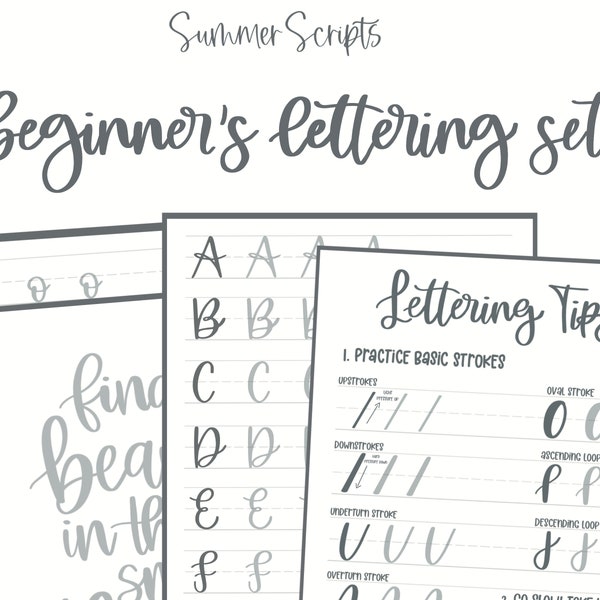 Summer Scripts
beginner's lettering set
Lettering Tips
1. PRACTICE BASIC STROKES
UPSTROKES
LIGHT
PRESSURE UP
OVAL STROKE
DOWNSTROKES
HARD
PRESSURE DOWN
ASCENDING LOOP
UNDERTURN STROKE
DESCENDING LOOP
OVERTURN STROKE
A A A A
B B B
C C C
D D D
E E E
F F F
o o
find
bea
in th
sm